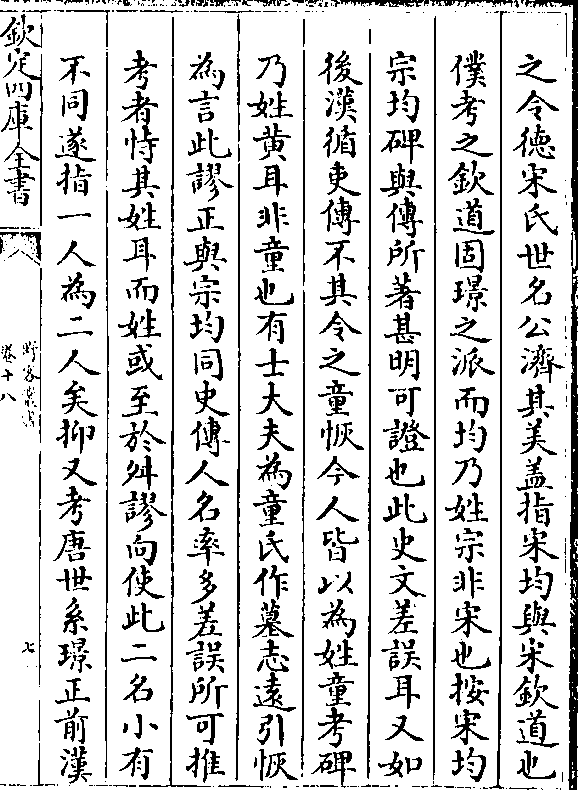 之令德宋氏世名公濟其美盖指宋均與宋欽道也
僕考之欽道固璟之派而均乃姓宗非宋也按宋均
宗均碑與傳所著甚明可證也此史文差誤耳又如
後漢循吏傳不其令之童恢今人皆以為姓童考碑
乃姓黄耳非童也有士大夫為童氏作墓志遠引恢
為言此謬正與宗均同史傳人名率多差誤所可推
考者恃其姓耳而姓或至於舛謬向使此二名小有
不同遂指一人為二人矣抑又考唐世系璟正前漢
欽定四庫全書
野客叢書
卷十八
七